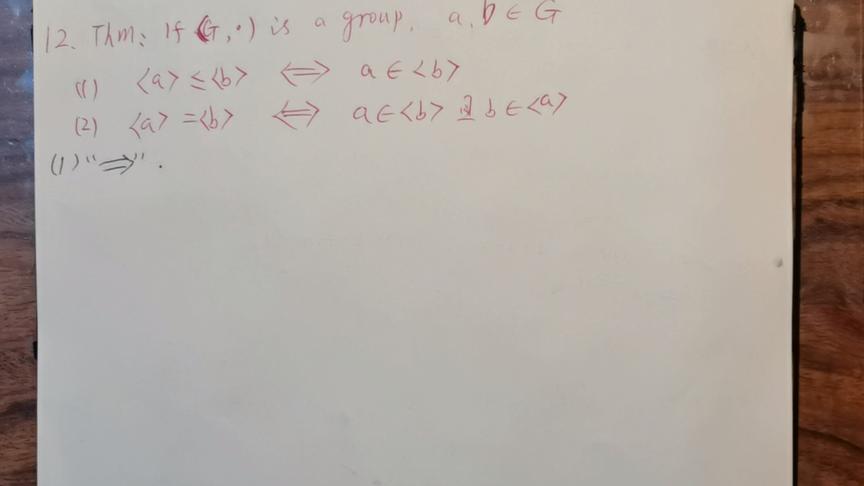 12. Thm: If (G, ·) is a group, a, b ∈ G
(1) <a> ≤ <b> ⟺ a ∈ <b>
(2) <a> = <b> ⟺ a ∈ <b> 且 b ∈ <a>
(1) "⟹".